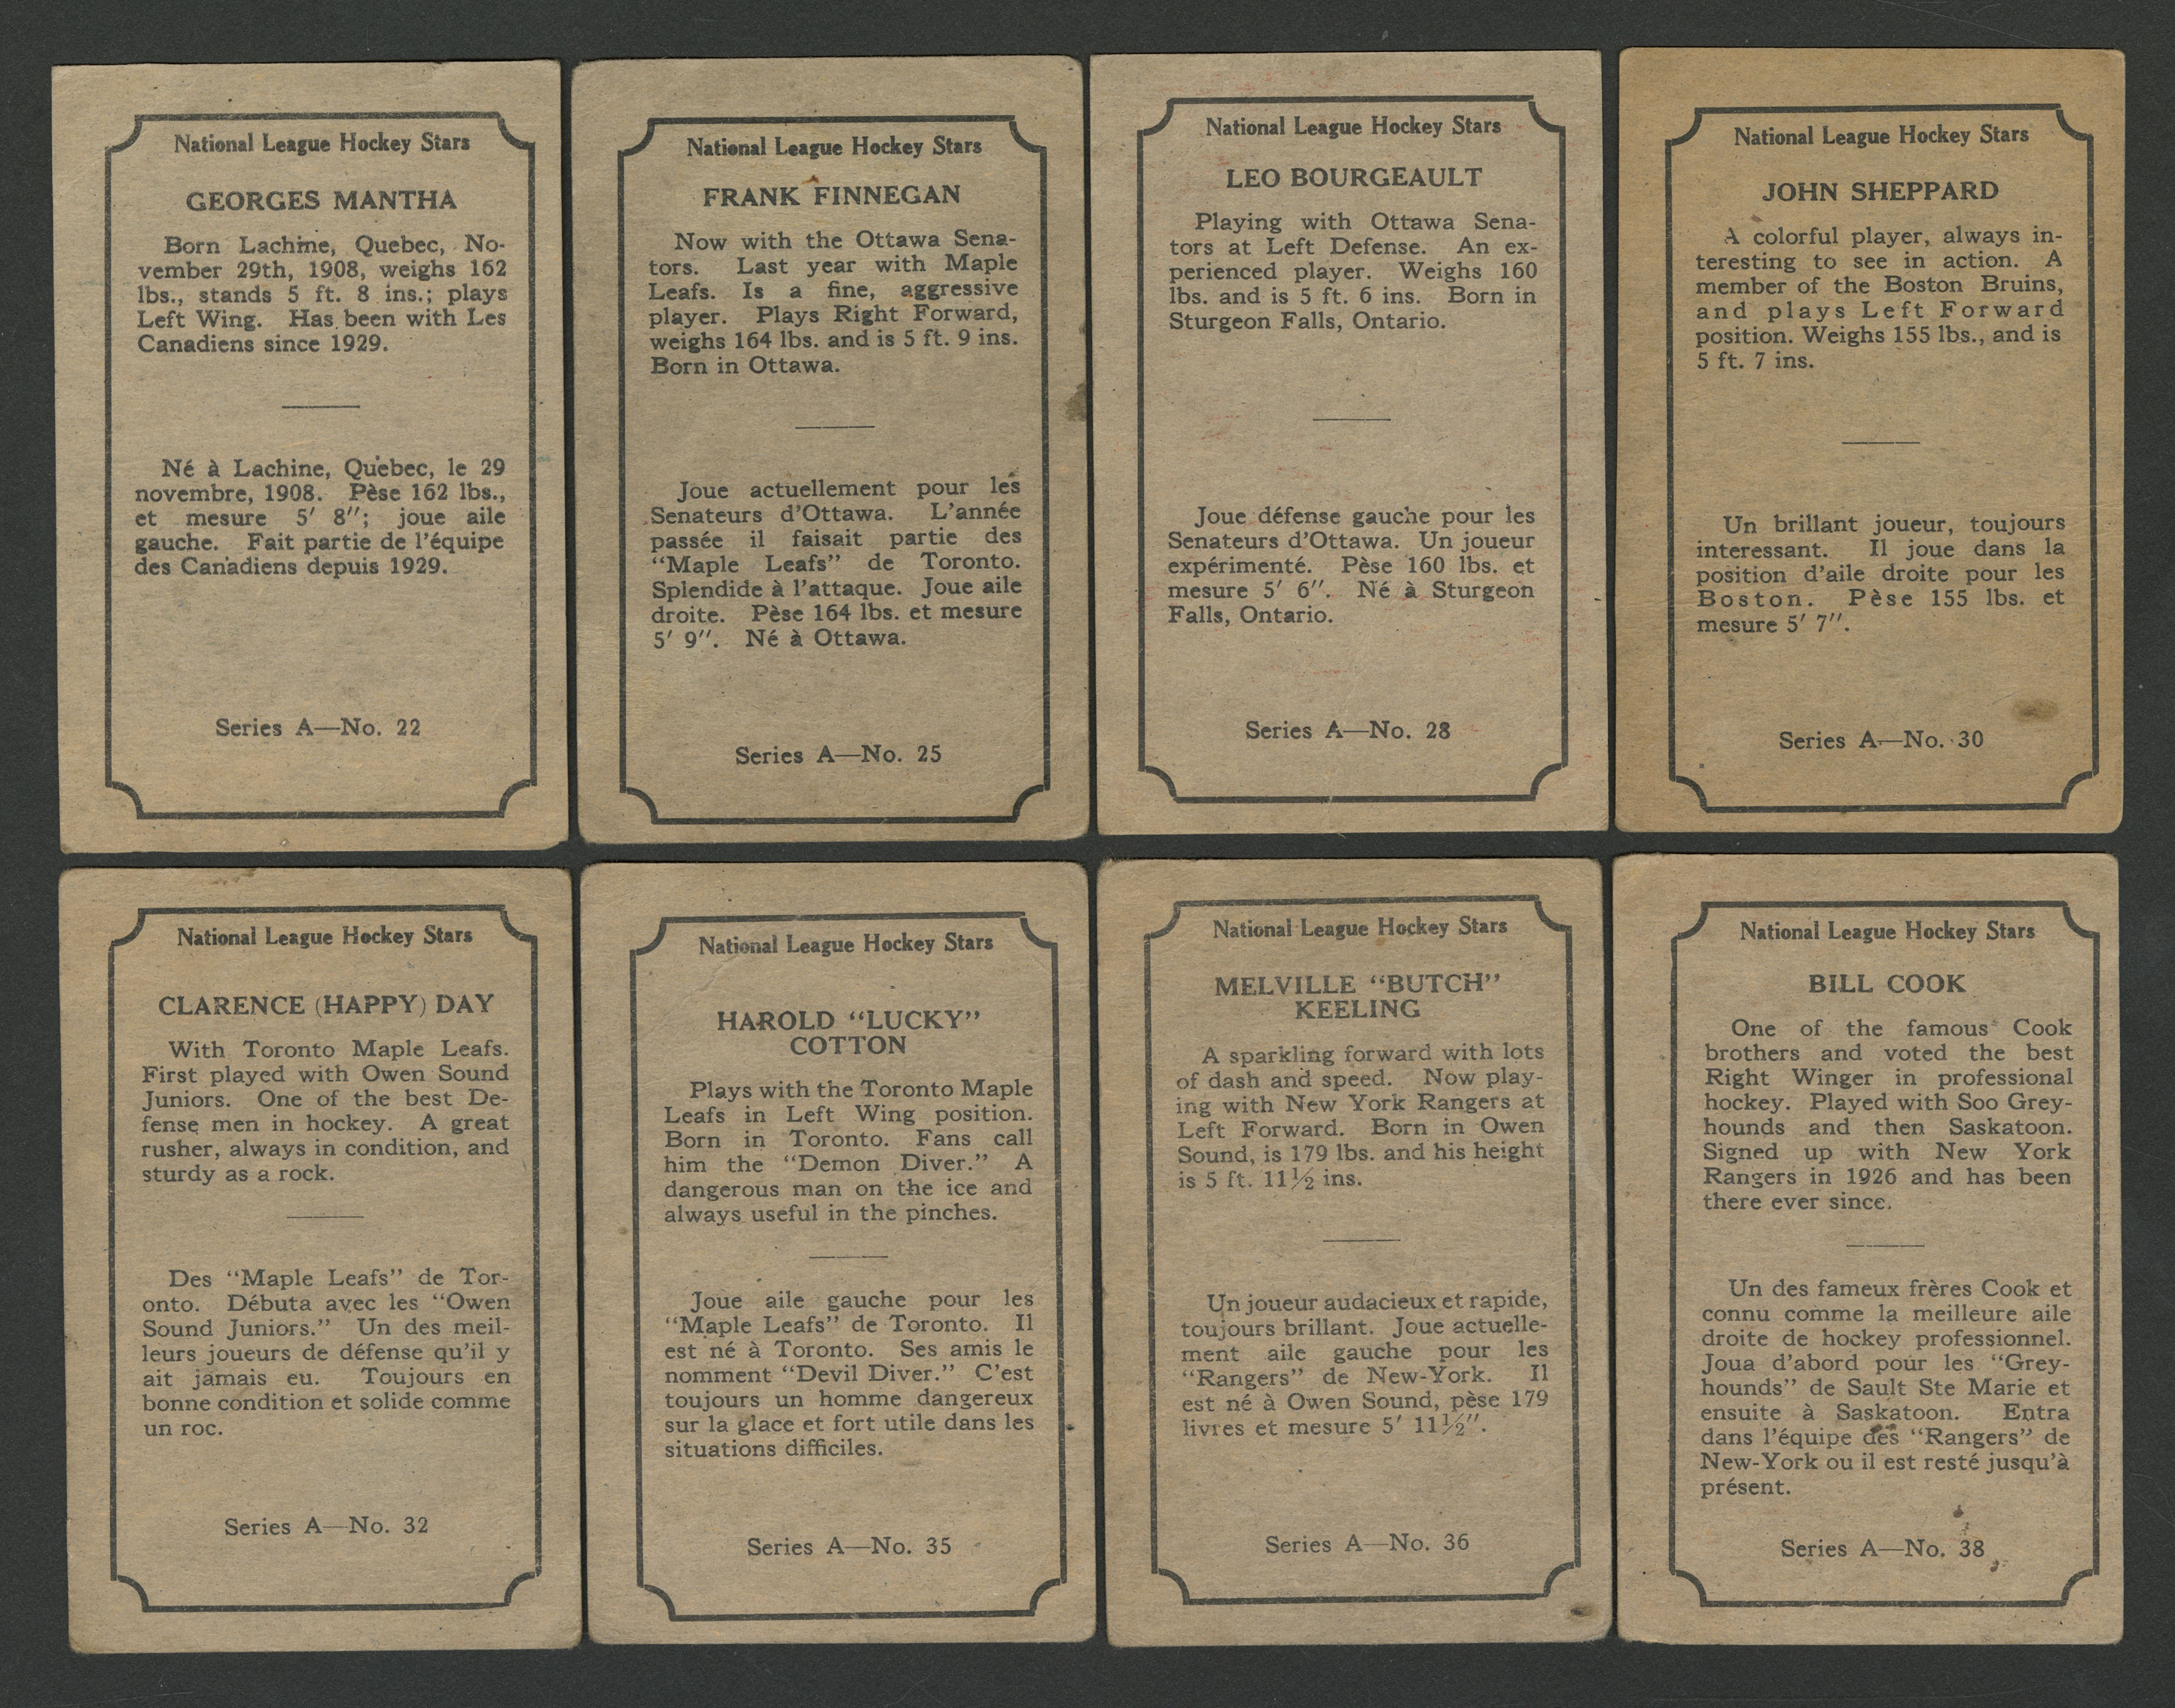 National League Hockey Stars
GEORGES MANTHA
Born Lachine, Quebec, No-
vember 29th, 1908, weighs 162
lbs., stands 5 ft. 8 ins.; plays
Left Wing. Has been with Les
Canadiens since 1929.
Né à Lachine, Quebec, le 29
novembre, 1908. Pèse 162 lbs.,
et mesure 5′ 8″; joue aile
gauche. Fait partie de l'équipe
des Canadiens depuis 1929.
Series A—No. 22
National League Hockey Stars
FRANK FINNEGAN
Now with the Ottawa Sena-
tors. Last year with Maple
Leafs. Is a fine, aggressive
player. Plays Right Forward,
weighs 164 lbs. and is 5 ft. 9 ins.
Born in Ottawa.
Joue actuellement pour les
Senateurs d'Ottawa. L'année
passée il faisait partie des
“Maple Leafs” de Toronto.
Splendide à l'attaque. Joue aile
droite. Pèse 164 lbs. et mesure
5′ 9″. Né à Ottawa.
Series A—No. 25
National League Hockey Stars
LEO BOURGEAULT
Playing with Ottawa Sena-
tors at Left Defense. An ex-
perienced player. Weighs 160
lbs. and is 5 ft. 6 ins. Born in
Sturgeon Falls, Ontario.
Joue défense gauche pour les
Senateurs d'Ottawa. Un joueur
expérimenté. Pèse 160 lbs. et
mesure 5′ 6″. Né à Sturgeon
Falls, Ontario.
Series A—No. 28
National League Hockey Stars
JOHN SHEPPARD
A colorful player, always in-
teresting to see in action. A
member of the Boston Bruins,
and plays Left Forward
position. Weighs 155 lbs., and is
5 ft. 7 ins.
Un brillant joueur, toujours
interessant. Il joue dans la
position d'aile droite pour les
Boston. Pèse 155 lbs. et
mesure 5′ 7″.
Series A—No. 30
National League Hockey Stars
CLARENCE (HAPPY) DAY
With Toronto Maple Leafs.
First played with Owen Sound
Juniors. One of the best De-
fense men in hockey. A great
rusher, always in condition, and
sturdy as a rock.
Des “Maple Leafs” de Tor-
onto. Débuta avec les “Owen
Sound Juniors.” Un des meil-
leurs joueurs de défense qu'il y
ait jamais eu. Toujours en
bonne condition et solide comme
un roc.
Series A—No. 32
National League Hockey Stars
HAROLD “LUCKY”
COTTON
Plays with the Toronto Maple
Leafs in Left Wing position.
Born in Toronto. Fans call
him the “Demon Diver.” A
dangerous man on the ice and
always useful in the pinches.
Joue aile gauche pour les
“Maple Leafs” de Toronto. Il
est né à Toronto. Ses amis le
nomment “Devil Diver.” C'est
toujours un homme dangereux
sur la glace et fort utile dans les
situations difficiles.
Series A—No. 35
National League Hockey Stars
MELVILLE “BUTCH”
KEELING
A sparkling forward with lots
of dash and speed. Now play-
ing with New York Rangers at
Left Forward. Born in Owen
Sound, is 179 lbs. and his height
is 5 ft. 11½ ins.
Un joueur audacieux et rapide,
toujours brillant. Joue actuelle-
ment aile gauche pour les
“Rangers” de New-York. Il
est né à Owen Sound, pèse 179
livres et mesure 5′ 11½″.
Series A—No. 36
National League Hockey Stars
BILL COOK
One of the famous Cook
brothers and voted the best
Right Winger in professional
hockey. Played with Soo Grey-
hounds and then Saskatoon.
Signed up with New York
Rangers in 1926 and has been
there ever since.
Un des fameux frères Cook et
connu comme la meilleure aile
droite de hockey professionnel.
Joua d'abord pour les “Grey-
hounds” de Sault Ste Marie et
ensuite à Saskatoon. Entra
dans l'équipe des “Rangers” de
New-York ou il est resté jusqu'à
présent.
Series A—No. 38